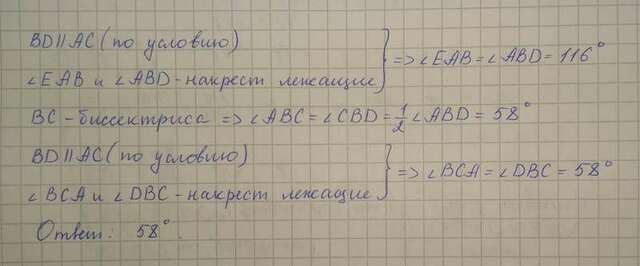 BD || AC (по условию)
∠EAB и ∠ABD - накрест лежащие } => ∠EAB = ∠ABD = 116°
BC - биссектриса => ∠ABC = ∠CBD = 1/2 ∠ABD = 58°
BD || AC (по условию)
∠BCA и ∠DBC - накрест лежащие } => ∠BCA = ∠DBC = 58°
Ответ: 58°.